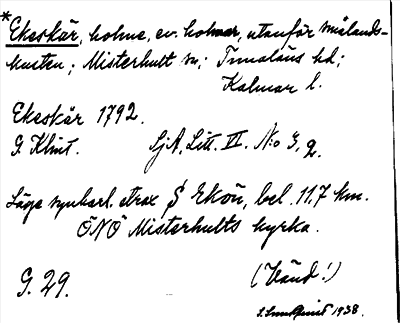 *Ekeskär, holme, ev. holmar, utanför smålands-
kusten; Misterhult sn; Tunaläns hd;
Kalmar l.
Ekeskär 1792.
G. Klint. SjA, Litt. II. No 3, 2.
Läge synbarl. strax S Ekön, bel. 11,7 km.
ÖNÖ Misterhults kyrka.
G. 29. (Vänd!)
1938.